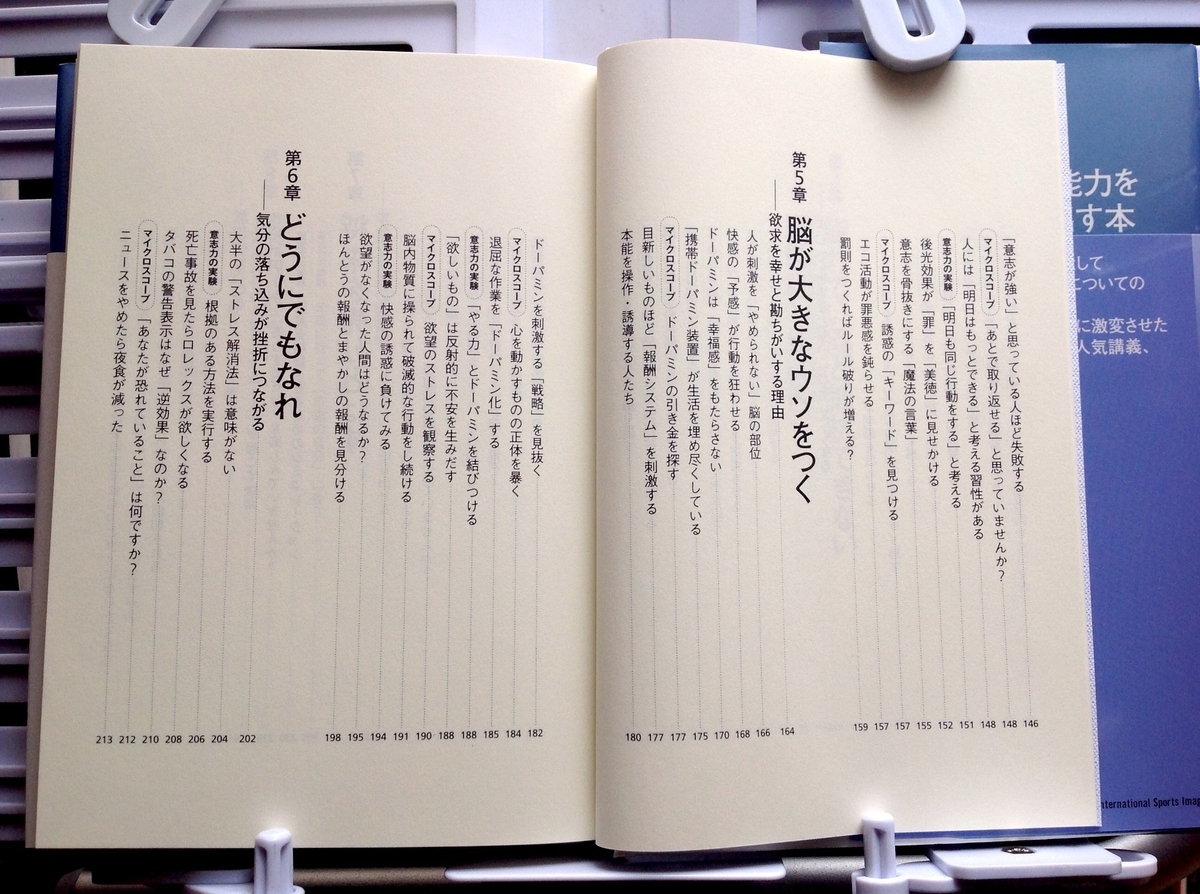 「意志が強い」と思っている人ほど失敗する 146
マイクロスコープ 「あとで取り返せる」と思っていませんか? 148
人には「明日はもっとできる」と考える習性がある 148
意志力の実験 「明日も同じ行動をする」と考える 151
後光効果が「罪」を「美徳」に見せかける 152
意志を骨抜きにする「魔法の言葉」 155
マイクロスコープ 誘惑の「キーワード」を見つける 157
エコ活動が罪悪感を鈍らせる 157
罰則をつくればルール破りが増える? 159
第5章 脳が大きなウソをつく
──欲求を幸せと勘ちがいする理由 164
人が刺激を「やめられない」脳の部位 166
快感の「予感」が行動を狂わせる 168
ドーパミンは「幸福感」をもたらさない 170
「携帯ドーパミン装置」が生活を埋め尽くしている 175
マイクロスコープ ドーパミンの引き金を探す 177
目新しいものほど「報酬システム」を刺激する 177
本能を操作・誘導する人たち 180
ドーパミンを刺激する「戦略」を見抜く 182
マイクロスコープ 心を動かすものの正体を暴く 184
退屈な作業を「ドーパミン化」する 185
意志力の実験 「やる力」とドーパミンを結びつける 188
「欲しいもの」は反射的に不安を生みだす 188
マイクロスコープ 欲望のストレスを観察する 190
脳内物質に操られて破滅的な行動をし続ける 191
意志力の実験 快感の誘惑に負けてみる 194
欲望がなくなった人間はどうなるか? 195
ほんとうの報酬とまやかしの報酬を見分ける 198
第6章 どうにでもなれ
──気分の落ち込みが挫折につながる 202
大半の「ストレス解消法」は意味がない 204
意志力の実験 根拠のある方法を実行する 206
死亡事故を見たらロレックスが欲しくなる 208
タバコの警告表示はなぜ「逆効果」なのか? 210
マイクロスコープ 「あなたが恐れていること」は何ですか? 212
ニュースをやめたら夜食が減った 213
能力を
す本
して
についての
に激変させた
人気講義、
International Sports Imag